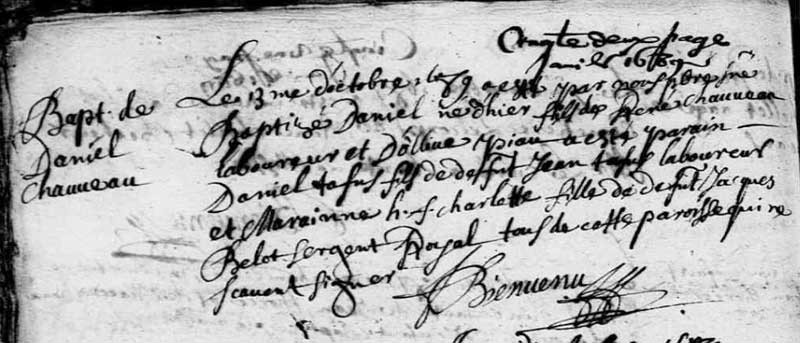 Cinqte deux page
Bapt. de
Daniel
Chauveau
Le 13me d'octobre 1689 a esté par nous ptre
Baptizé Daniel né d'hier fils de René Chauveau
laboureur et d'Ollive a esté parain
Daniel fils de deffut Jean laboureur
et Marainne Charlotte fille de defut Jacques
Belot sergent Royal tous de cette paroisse qui ne
scavent signer Bienvenu